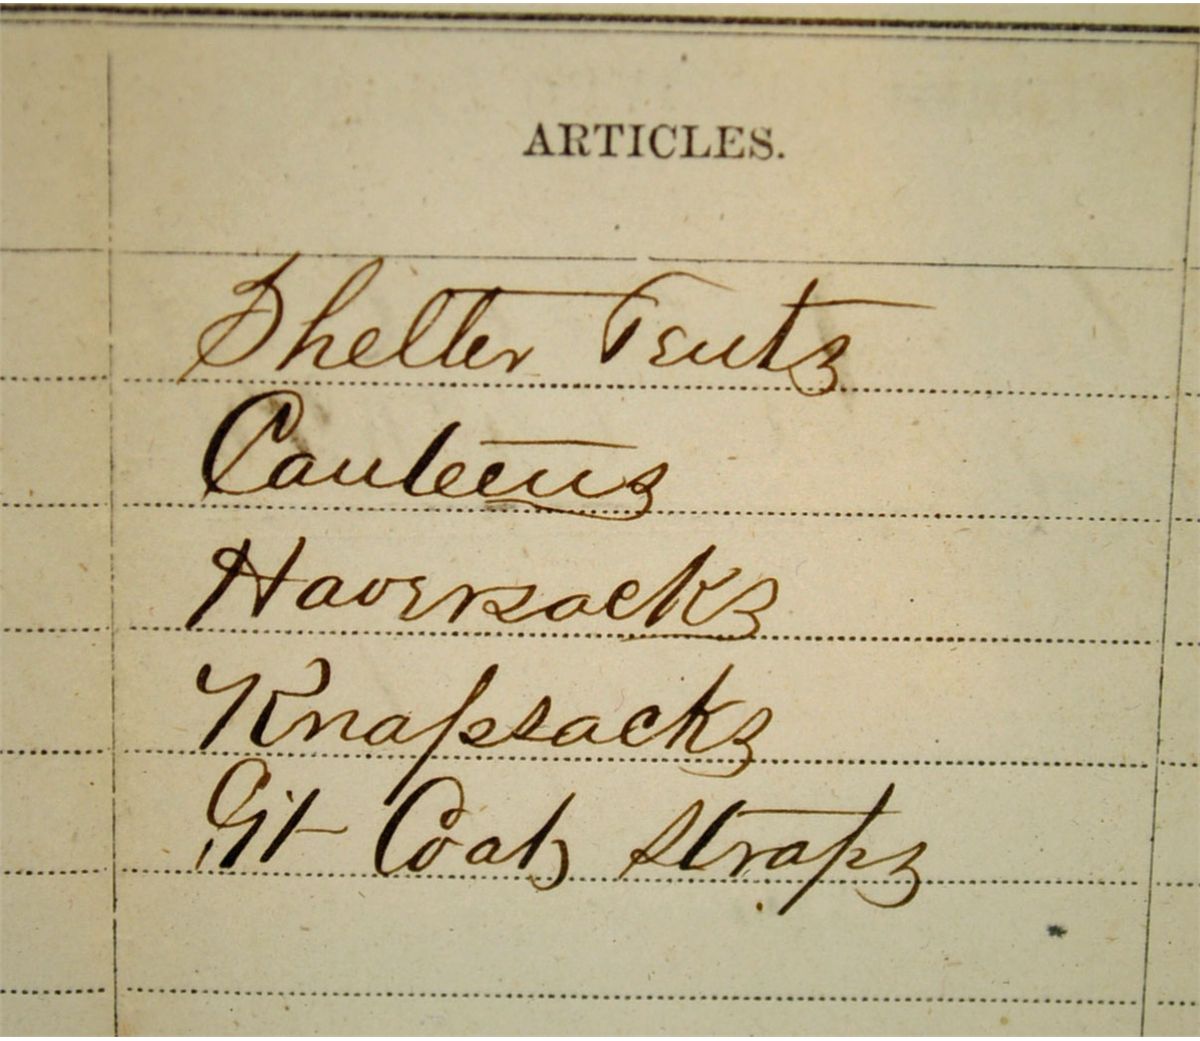 ARTICLES.
Shelter Tents
Canteens
Haversacks
Knapsacks
Gt Coat Straps